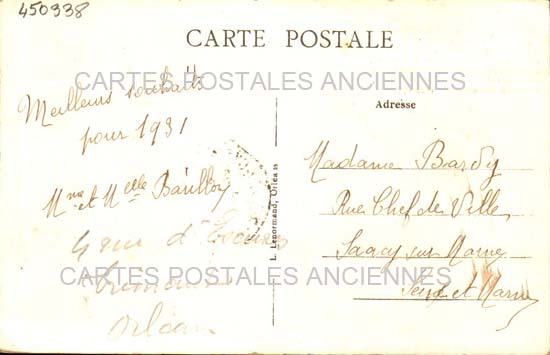 450938
CARTE POSTALE
CARTES POSTALES ANCIENNES
Adresse
Meilleurs souhaits
pour 1931
Mme et Melle
4 rue d'
Orléans
L. Lenormand, Orléans
Madame Bardy
Rue Chef de Ville
Saacy sur Marne
Seine et Marne
CARTES POSTALES ANCIENNES